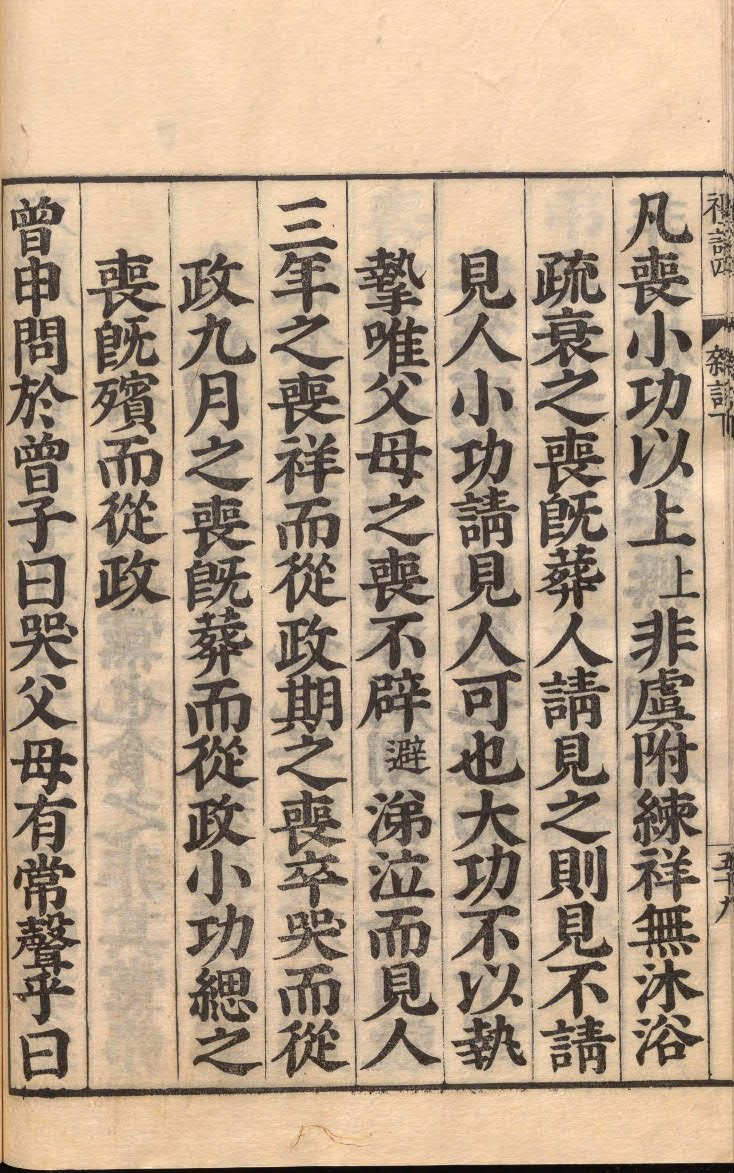 禮記四 雜記下 五十九
凡喪小功以上上非虞附練祥無沐浴
疏衰之喪旣葬人請見之則見不請
見人小功請見人可也大功不以執
摯唯父母之喪不辟避涕泣而見人
三年之喪祥而從政期之喪卒哭而從
政九月之喪旣葬而從政小功緦之
喪旣殯而從政
曾申問於曾子曰哭父母有常聲乎曰